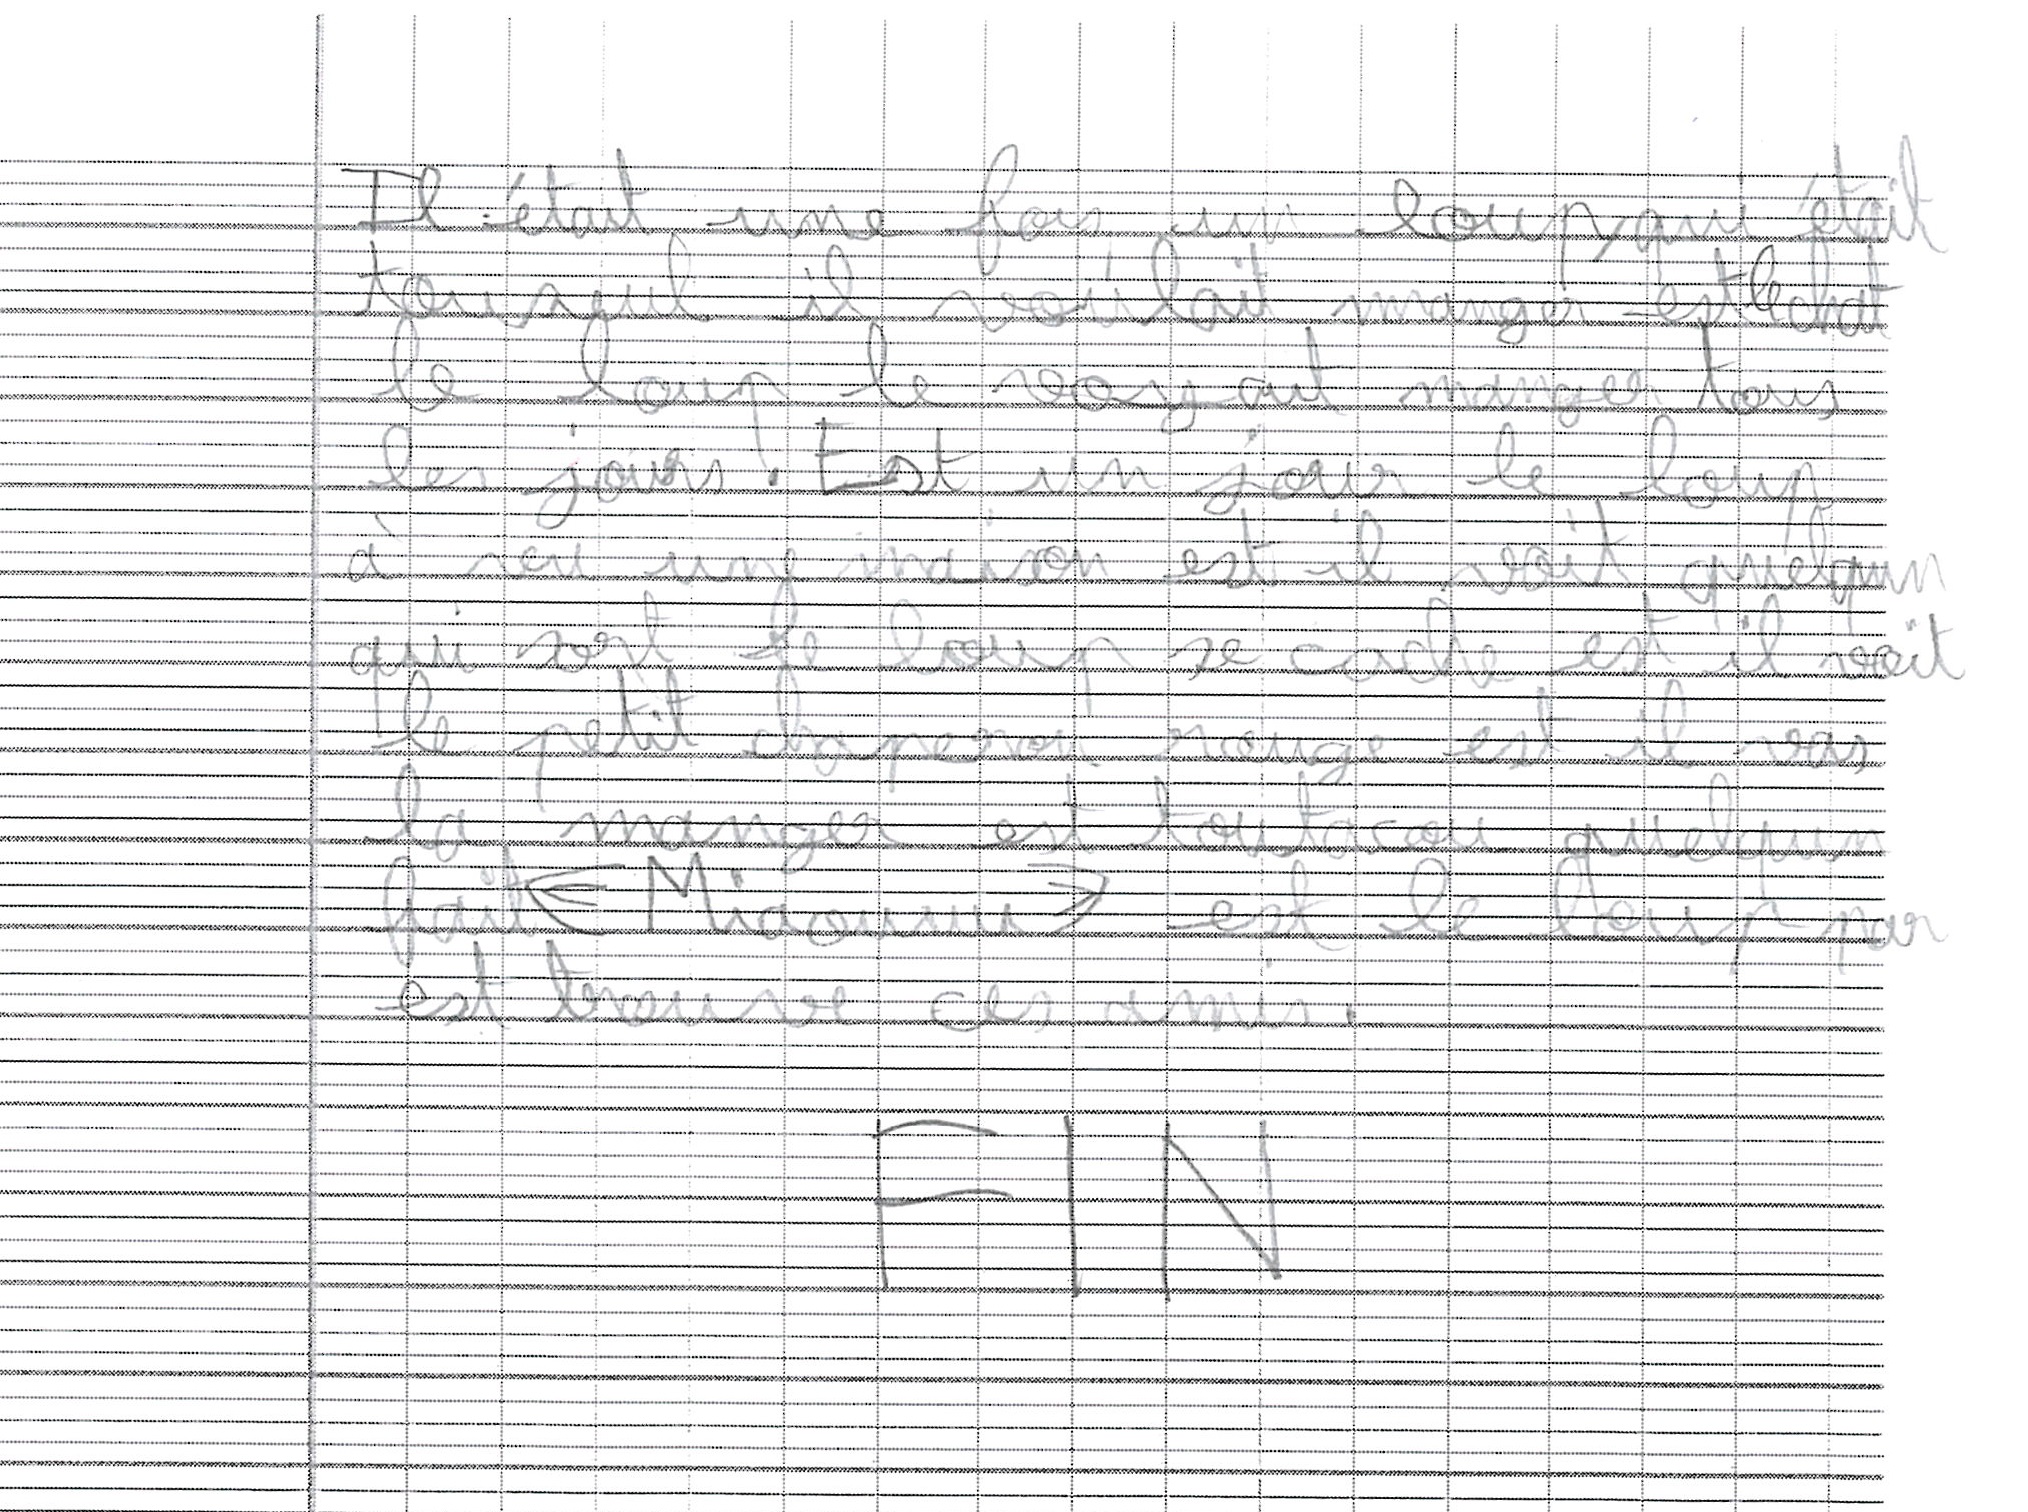 Il était une fois un loup qui était
touseul il voulait manger est le chat
le loup le voyait manger tous
les jours. Est un jour le loup
à vu une maison est il voit quelqun
qui sort le loup se cache est il voit
le petit chaperon rouge est il vas
la manger est toutacou quelqun
fait « Miaouuu » est le loup par
est trouve ces amis.
FIN